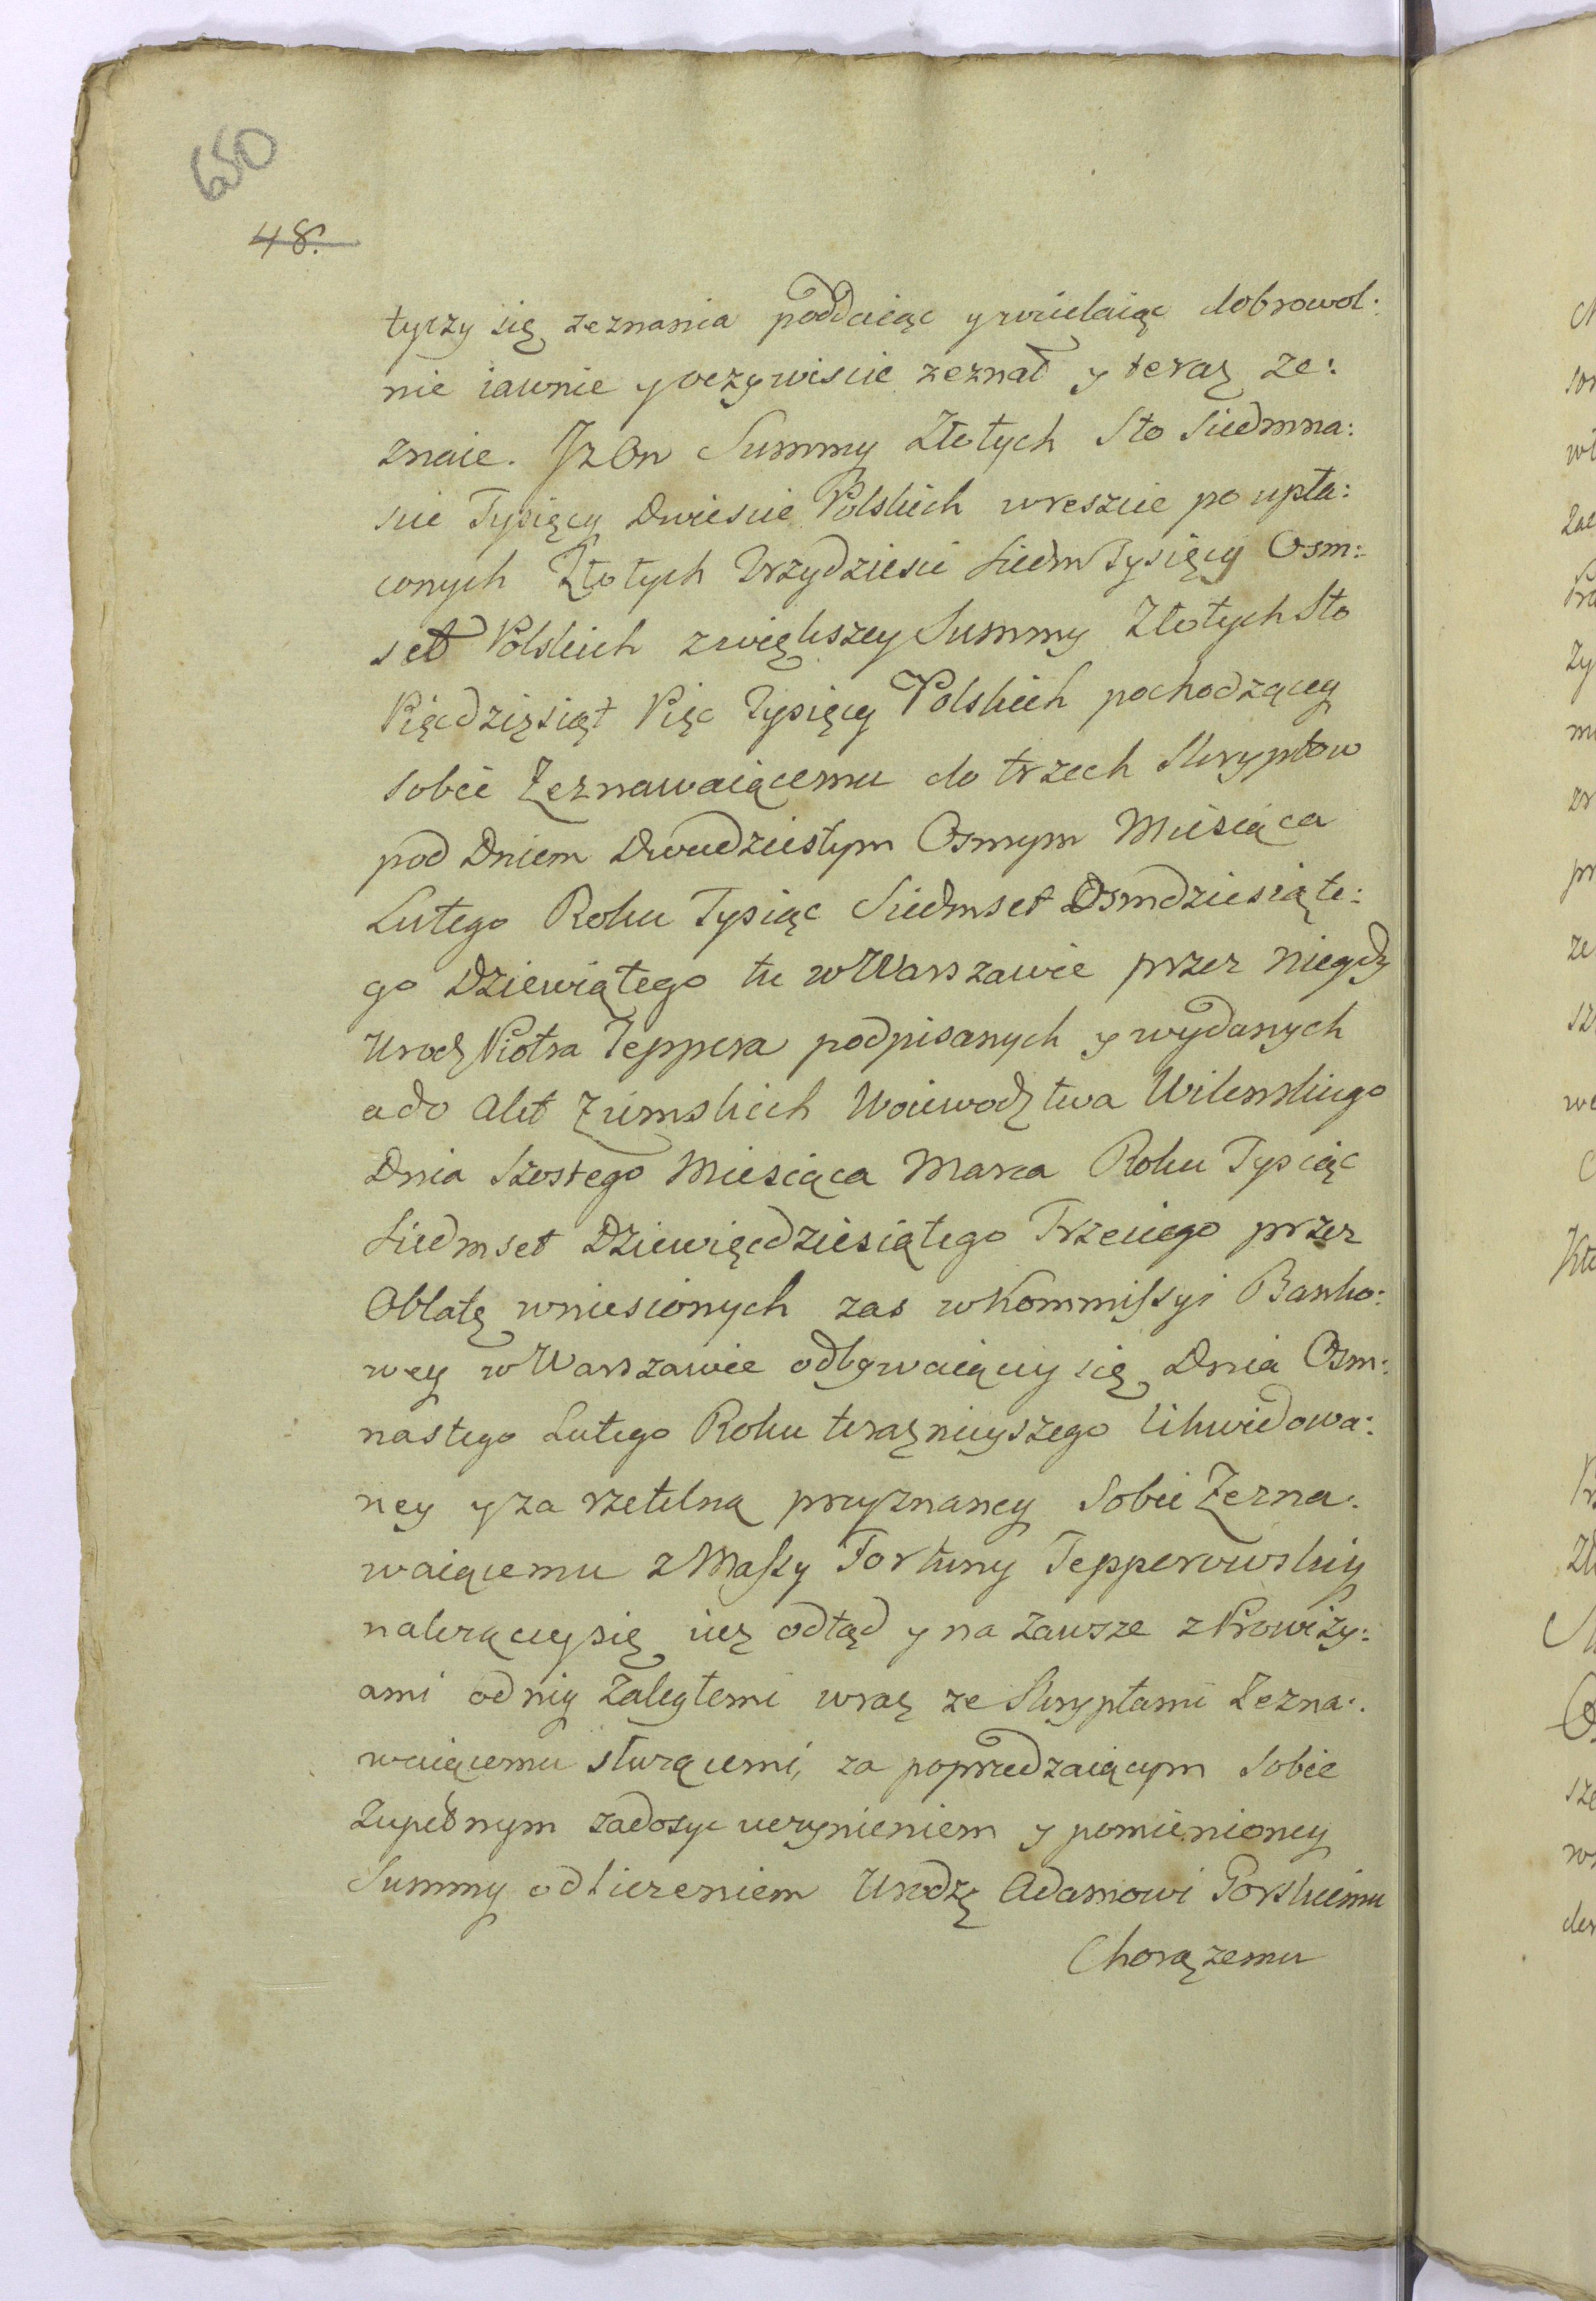 650
48.
tyczy się zeznania poddaiąc y wcielaiąc dobrowol:
nie iawnie y oczywiscie zeznał y teraz ze:
znaie. Iz On Summy Złotych Sto Siedmna:
scie Tysięcy Dwiescie Polskich w reszcie po upła:
conych Złotych Trzydziesci Siedm Tysięcy Osm:
set Polskich z większey Summy Złotych Sto
Pięcdziesiąt Pięc Tysięcy Polskich pochodzącey
sobie Zeznawaiącemu do trzech Skryptow
pod Dniem Dwudziestym Osmym Miesiąca
Lutego Roku Tysiąc Siedmset Osmdziesiąte:
go Dziewiątego tu w Warszawie przez niegdy
Urodz Piotra Teppera podpisanych y wydanych
a do Akt Ziemskich Woiewodztwa Wilenskiego
Dnia Szostego Miesiąca Marca Roku Tysiąc
Siedmset Dziewięcdziesiątego Trzeciego przez
Oblatę wniesionych zas w Kommissyi Banko:
wey w Warszawie odbywaiącey się Dnia Osm:
nastego Lutego Roku teraznieyszego likwidowa:
ney y za rzetelną przyznaney Sobie Zezna:
waiącemu z Massy Fortuny Tepperowskiey
nalezącey się iuz odtąd y na zawsze z Prowizy:
ami od niey Zaległemi wraz ze Skryptami Zezna:
waiącemu słuzącemi, za poprzedzaiącym sobie
Zupełnym zadosyc uczynieniem y pomienioney
Summy odliczeniem Urodz Adamowi Gorskiemu
Chorązemu